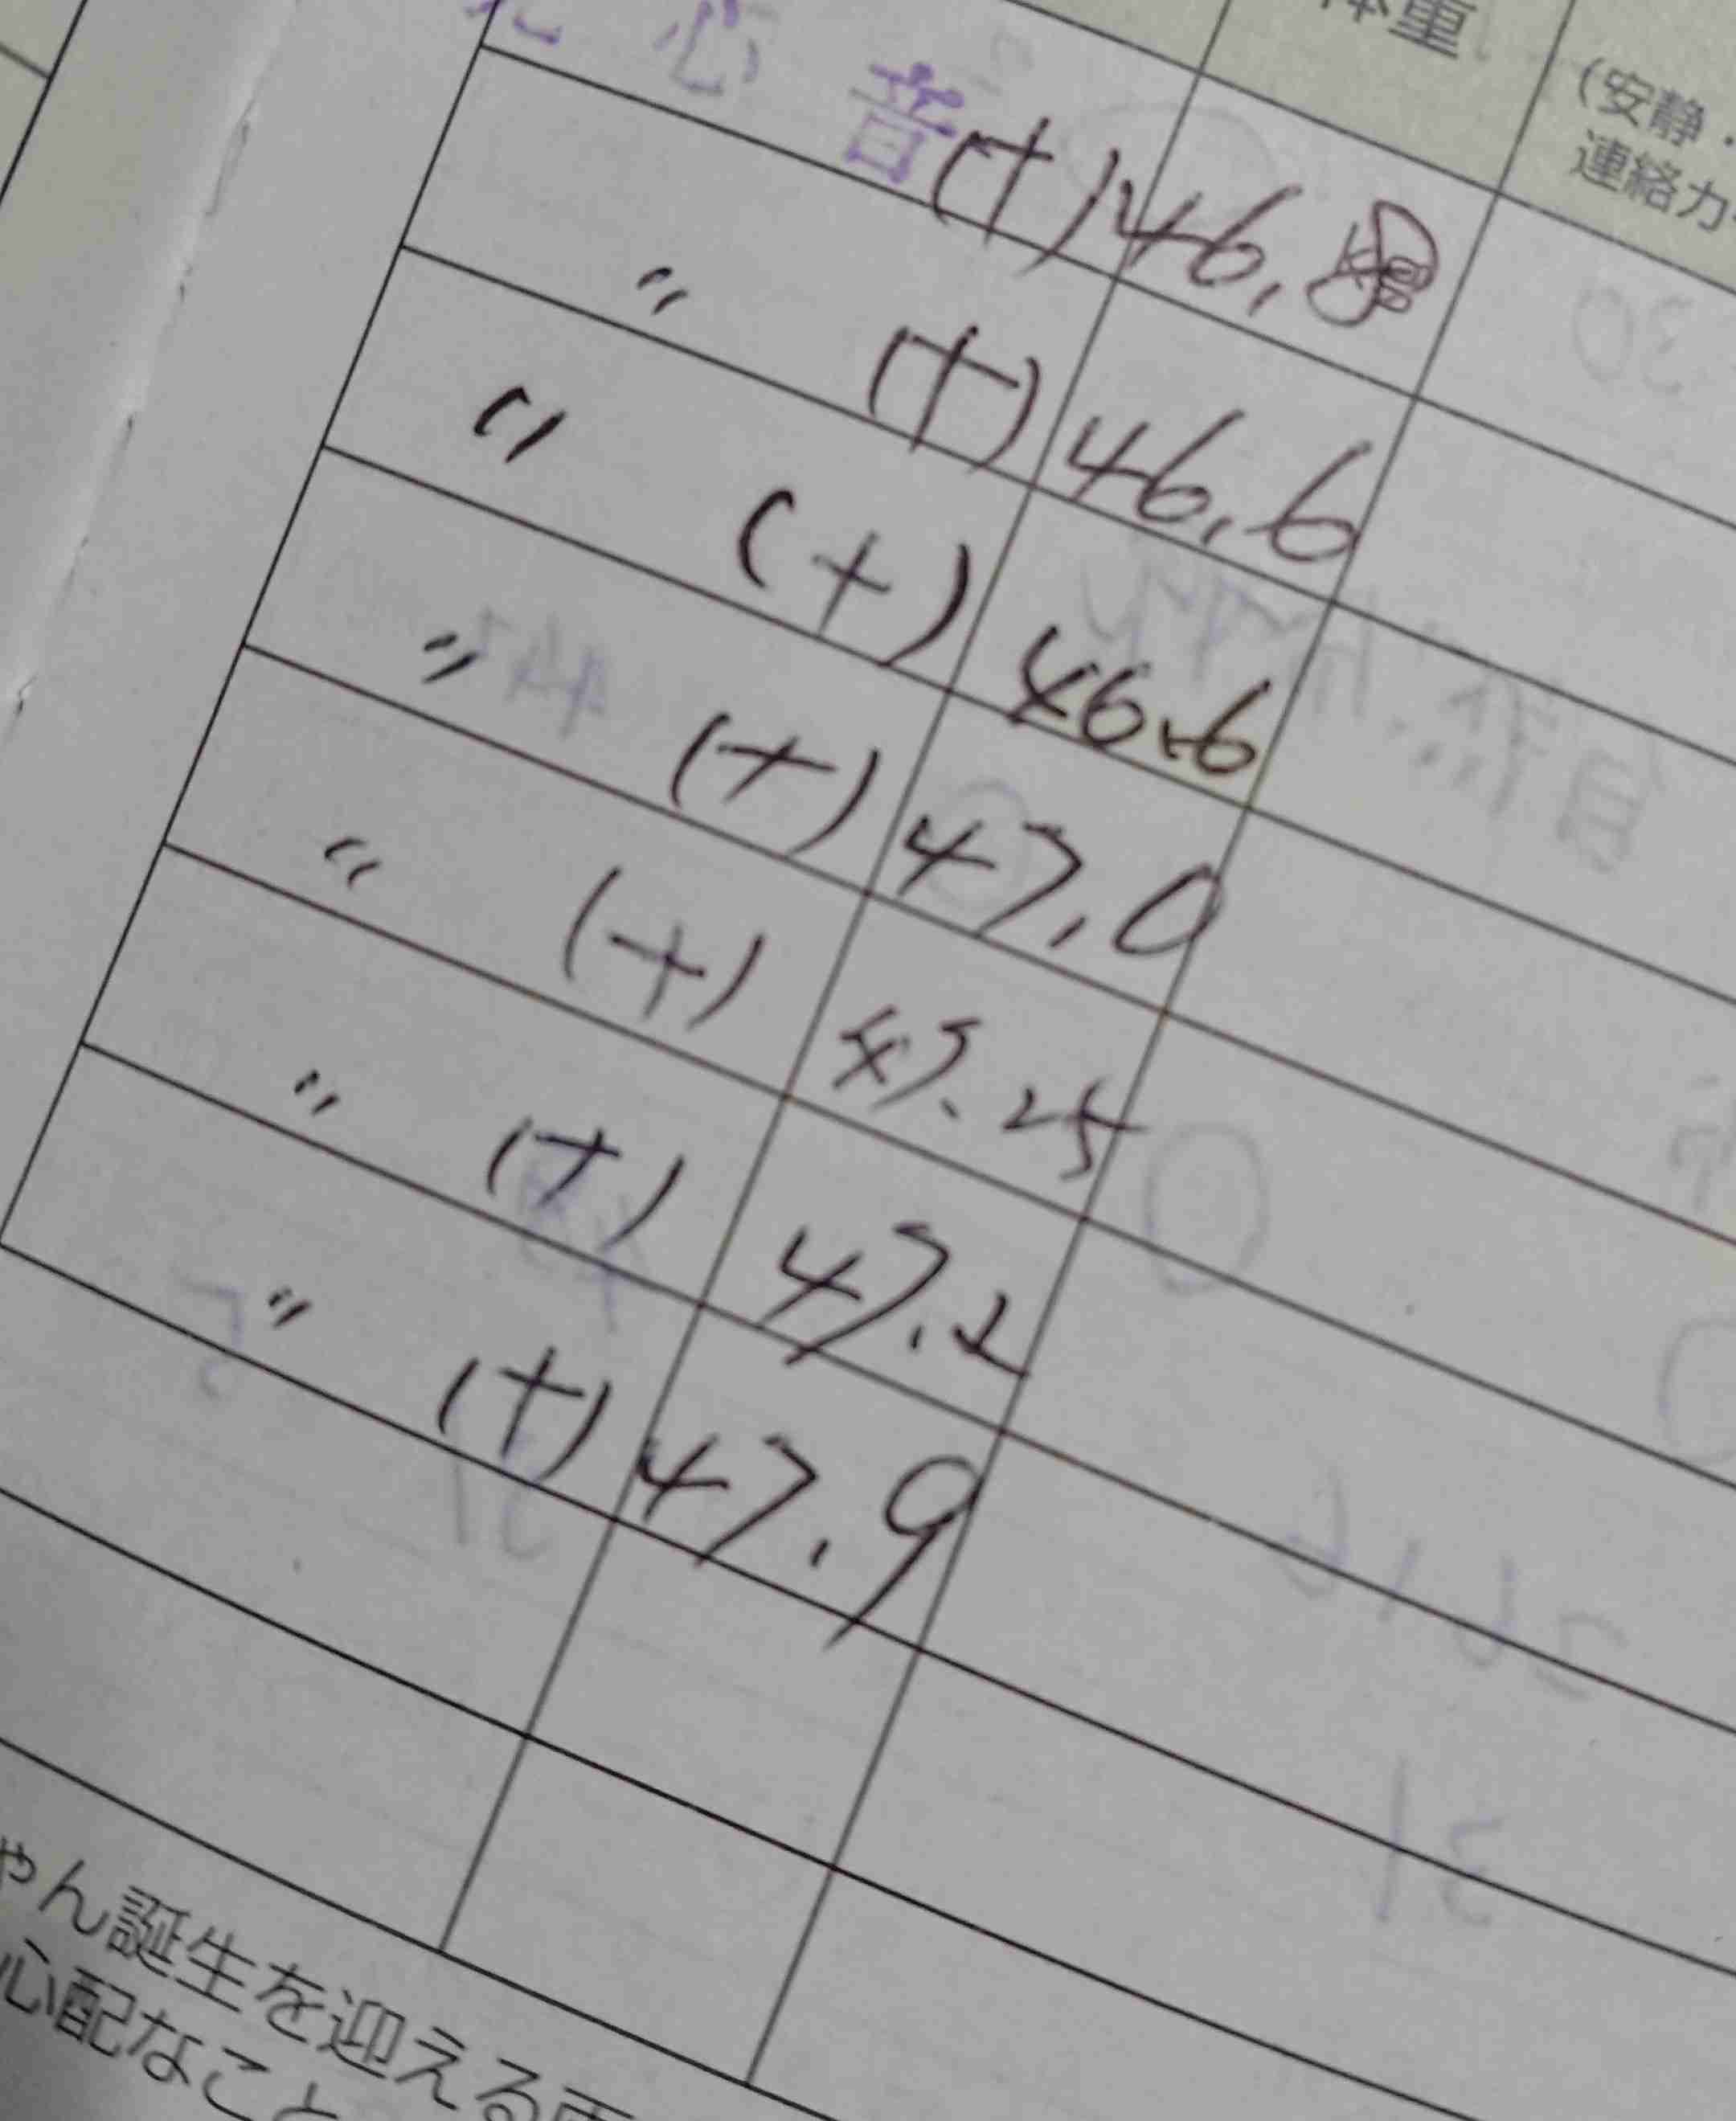 体重
(安静・
連絡カ
児心音(+) 46.8
〃 (+) 46.6
〃 (+) 46.6
〃 (+) 47.0
〃 (+) 47.25
〃 (+) 47.2
〃 (+) 47.9
ゃん誕生を迎える
心配なこと